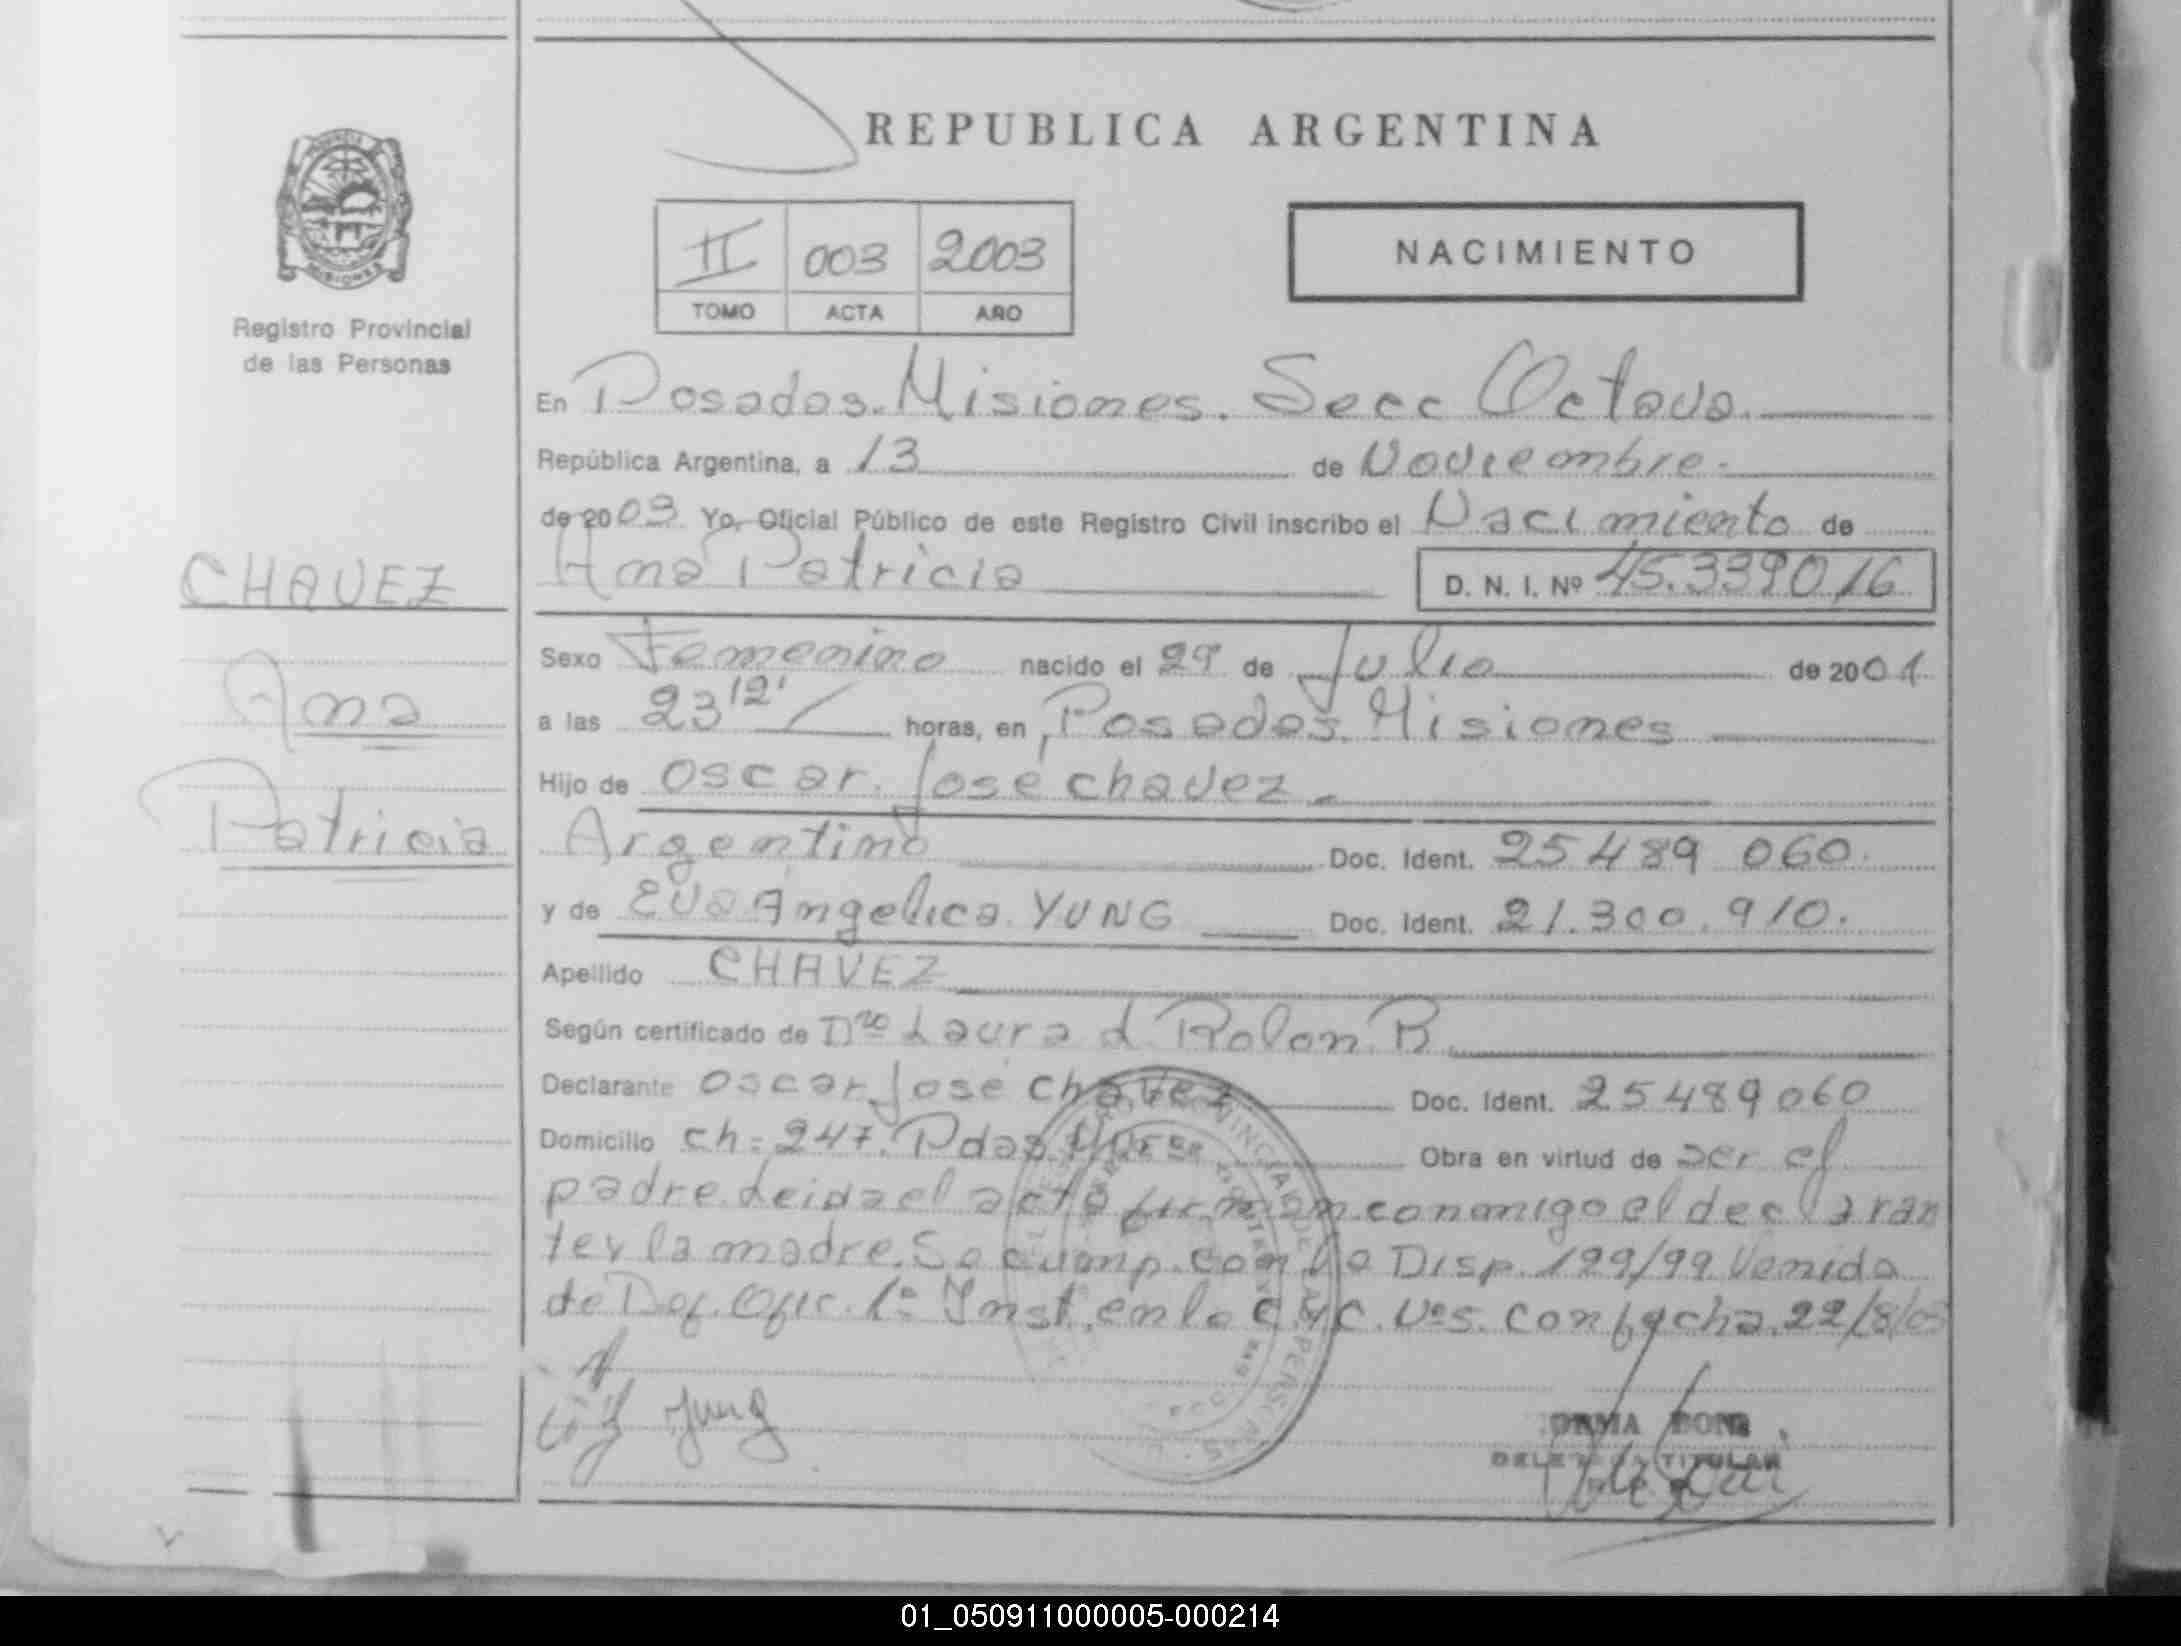 REPUBLICA ARGENTINA
II 003 2003
TOMO ACTA AÑO
NACIMIENTO
PROVINCIA DE
MISIONES
Registro Provincial
de las Personas
En Posadas. Misiones. Secc Octava.
República Argentina, a 13 de Noviembre.
de 2003 Yo, Oficial Público de este Registro Civil inscribo el Nacimiento de
CHAVEZ
Ana
Patricia
Ana Patricia D. N. I. Nº 45.339016
Sexo Femenino nacido el 29 de Julio de 2001
a las 23 12' horas, en Posadas. Misiones
Hijo de Oscar José chavez.
Argentino Doc. Ident. 25489 060.
y de Eva Angelica YUNG Doc. Ident. 21.300.910.
Apellido CHAVEZ
Según certificado de Dra Laura d. Rolon B.
Declarante Oscar José chavez Doc. Ident. 25489060
Domicilio ch: 247. Pdas. Obra en virtud de ser el
padre. Leida el acta firman conmigo el declaran
te y la madre. Se cump. con la Disp. 199/99 Venida
de Def. Ofic. 1º Inst. en lo C y C. Nº5. con fecha 22/8/03
Yung
TITULAR
01_050911000005-000214